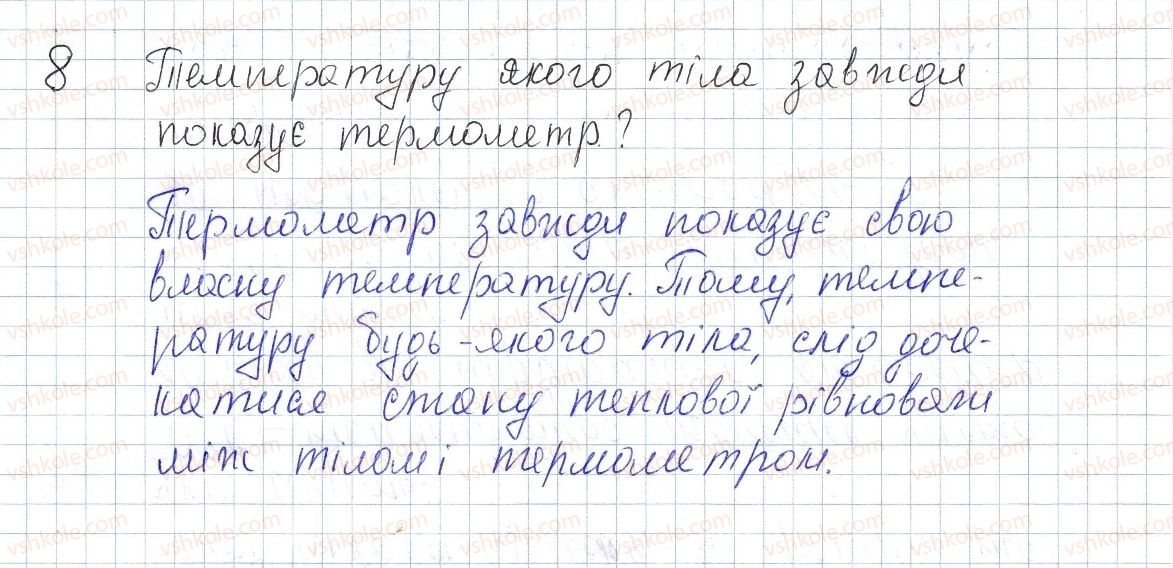 8 Температуру якого тіла завжди
показує термометр?
Термометр завжди показує свою
власну температуру. Тому, темпе-
ратуру будь-якого тіла, слід доче-
катися стану теплової рівноваги
між тілом і термометром.